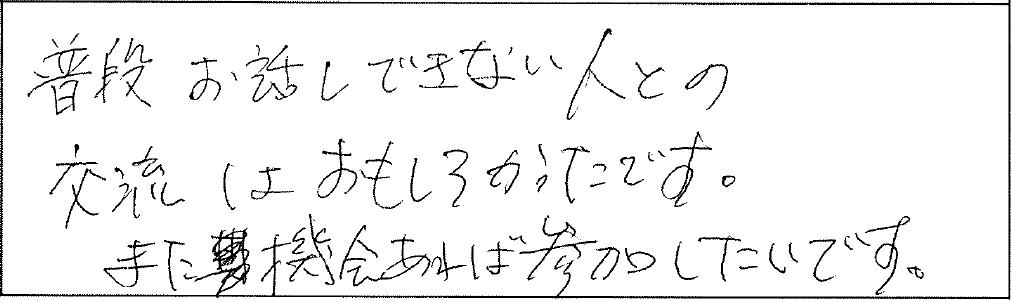 普段お話しできない人との
交流はおもしろかったです。
また機会あれば参加したいです。